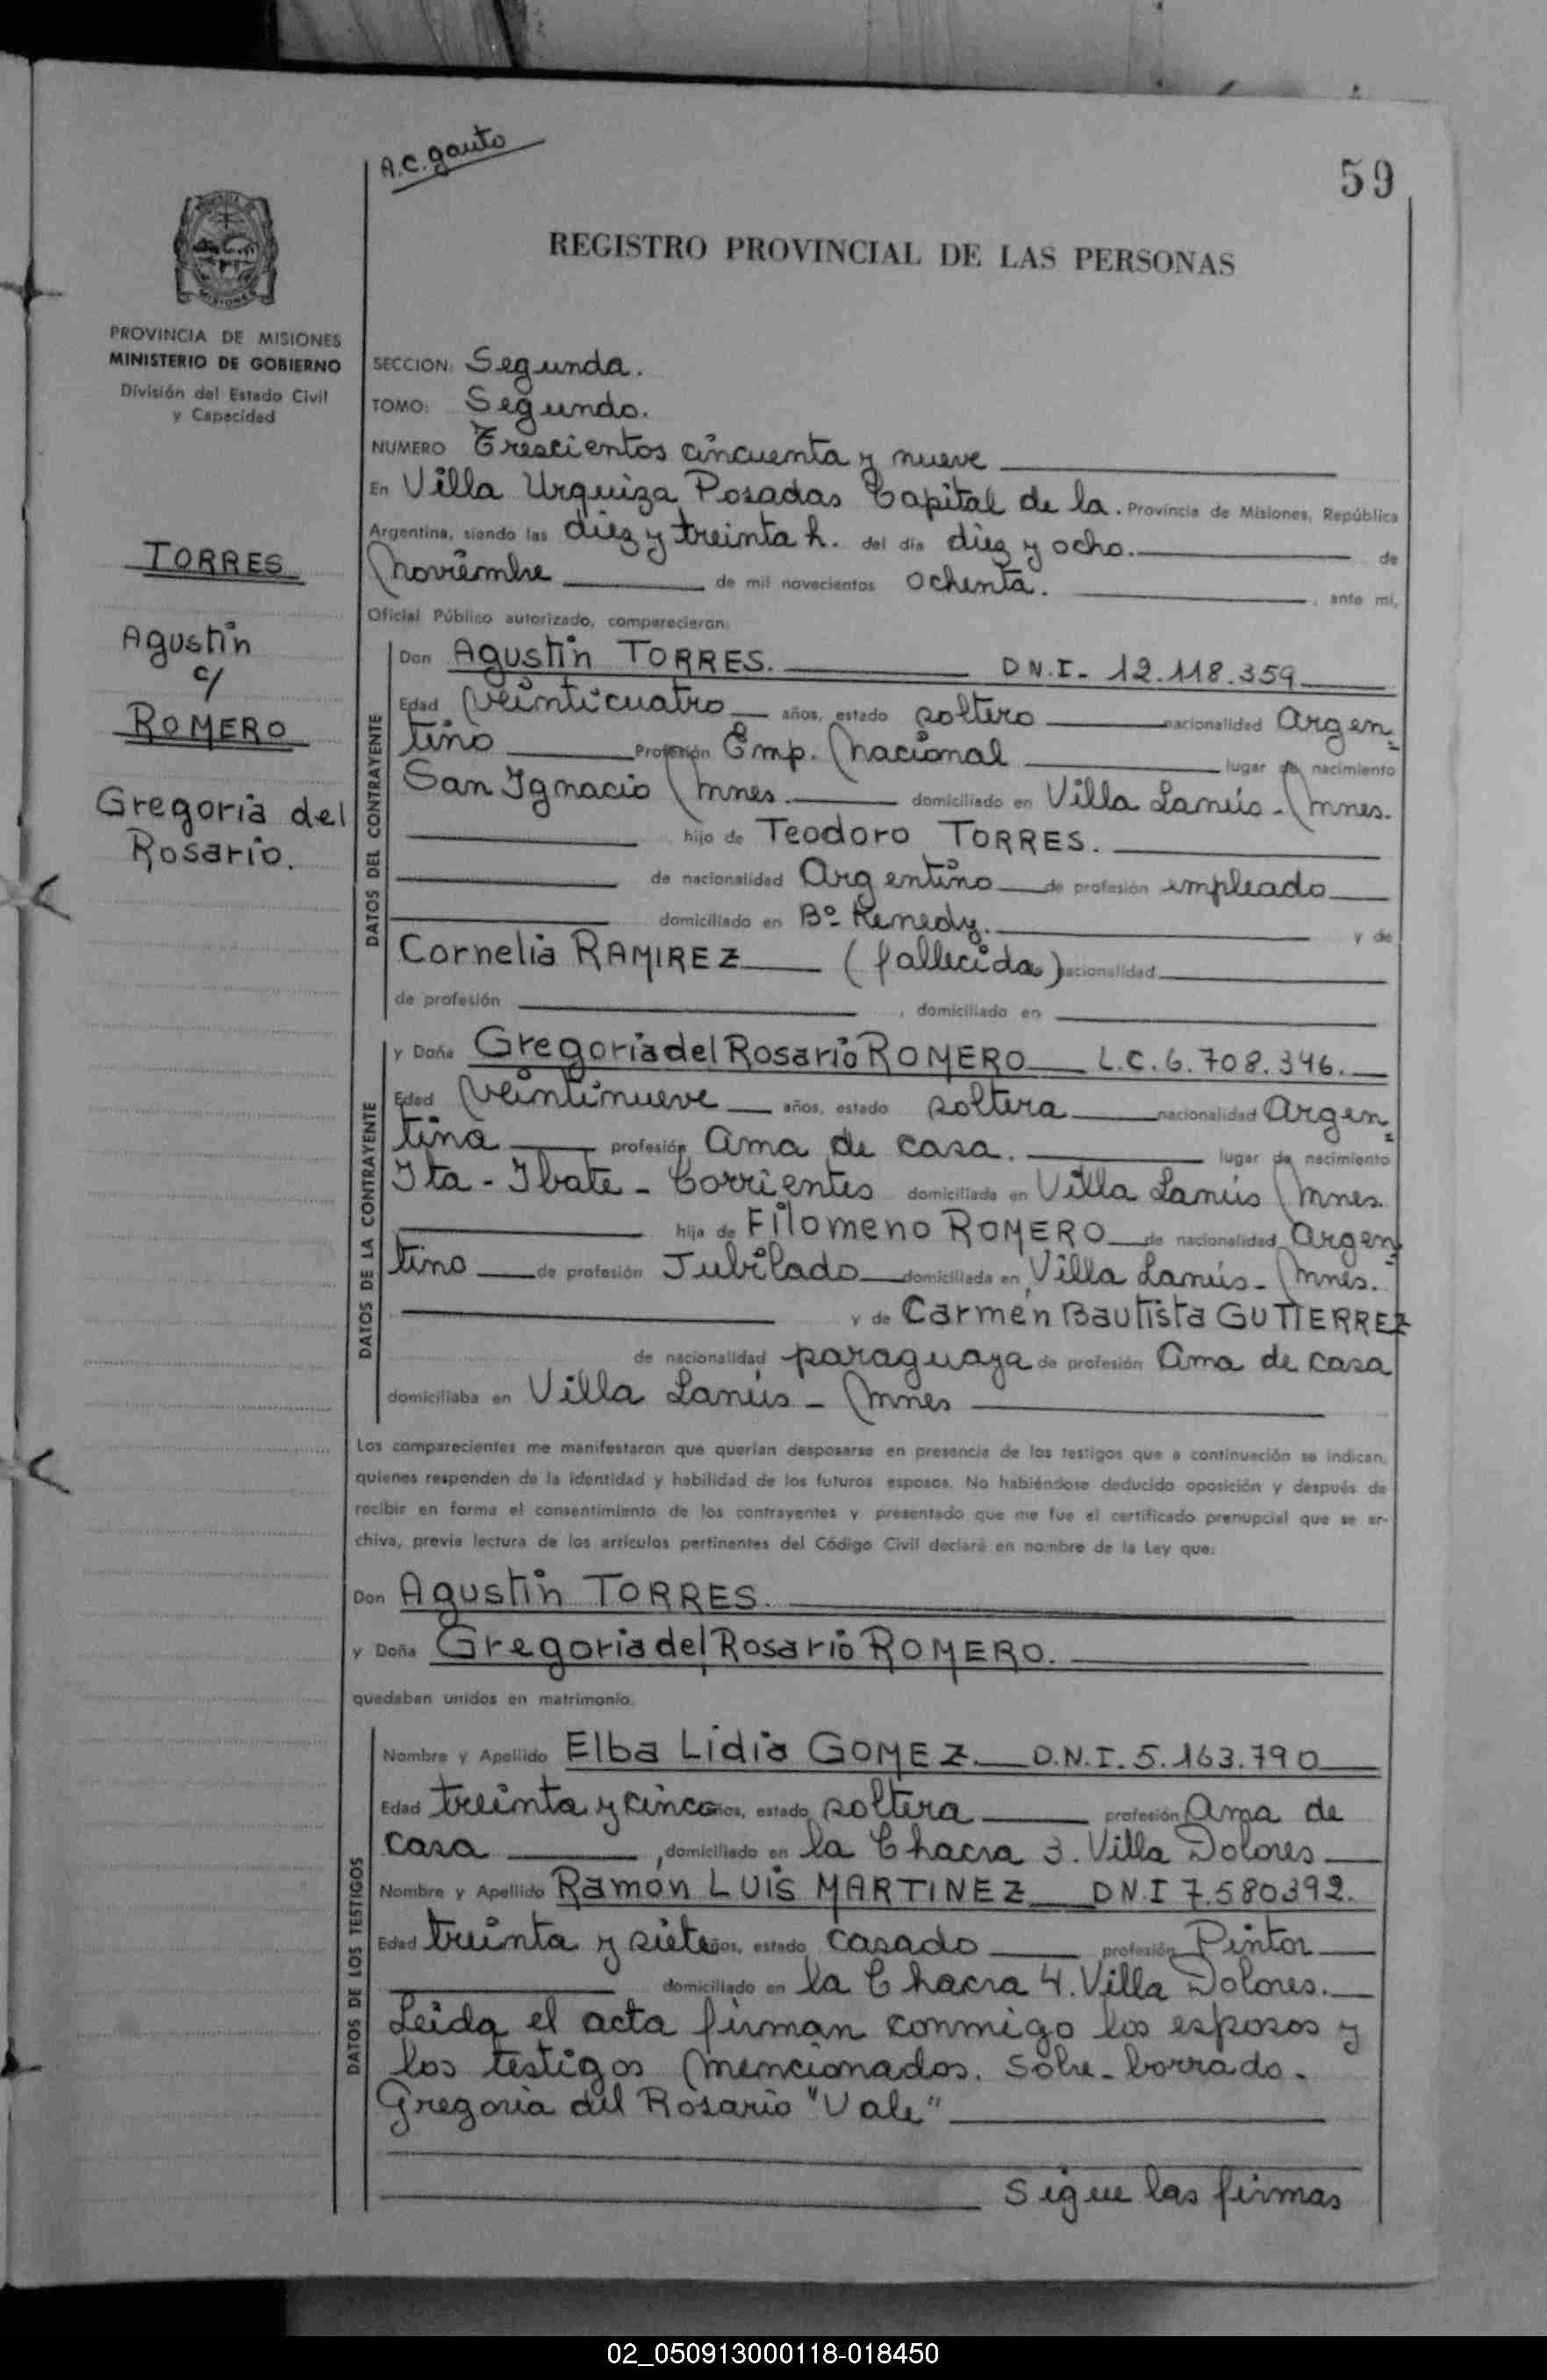 A.C. gauto
59
REGISTRO PROVINCIAL DE LAS PERSONAS
MISIONES
PROVINCIA DE MISIONES
MINISTERIO DE GOBIERNO
División del Estado Civil
y Capacidad
TORRES
Agustin
c/
ROMERO
Gregoria del
Rosario.
SECCION: Segunda.
TOMO: Segundo.
NUMERO Trescientos cincuenta y nueve
En Villa Urquiza Posadas Capital de la. Provincia de Misiones, República
Argentina, siendo las diez y treinta h. del día diez y ocho. de
Noviembre de mil novecientos ochenta. , ante mí,
Oficial Público autorizado, comparecieron:
DATOS DEL CONTRAYENTE
Don Agustin TORRES. D N.I- 12.118.359
Edad veinticuatro años, estado soltero nacionalidad Argen
tino Profesión Emp. Nacional lugar de nacimiento
San Ignacio Mnes. domiciliado en Villa Lanús - Mnes.
hijo de Teodoro TORRES.
de nacionalidad Argentino de profesión empleado
domiciliado en Bº Kenedy. y de
Cornelia RAMIREZ (fallecida) nacionalidad
de profesión , domiciliado en
DATOS DE LA CONTRAYENTE
y Doña Gregoria del Rosario ROMERO L.C. 6.708.346.
Edad veintinueve años, estado soltera nacionalidad Argen
tina profesión Ama de casa. lugar de nacimiento
Ita - Ibate - Corrientes domiciliada en Villa Lanús Mnes.
hija de Filomeno ROMERO de nacionalidad Argen
tino de profesión Jubilado domiciliada en Villa Lanús - Mnes.
y de Carmen Bautista GUTIERREZ
de nacionalidad paraguaya de profesión Ama de casa
domiciliaba en Villa Lanús - Mnes
Los comparecientes me manifestaron que querían desposarse en presencia de los testigos que a continuación se indican,
quienes responden de la identidad y habilidad de los futuros esposos. No habiéndose deducido oposición y después de
recibir en forma el consentimiento de los contrayentes y presentado que me fue el certificado prenupcial que se ar-
chiva, previa lectura de los artículos pertinentes del Código Civil declaré en nombre de la Ley que:
Don Agustin TORRES.
y Doña Gregoria del Rosario ROMERO.
quedaban unidos en matrimonio.
DATOS DE LOS TESTIGOS
Nombre y Apellido Elba Lidia GOMEZ. D.N.I. 5.163.790
Edad treinta y cinco años, estado soltera profesión Ama de
casa , domiciliado en la Chacra 3. Villa Dolores
Nombre y Apellido Ramón LUIS MARTINEZ D N.I 7.580392.
Edad treinta y siete años, estado casado profesión Pintor
domiciliado en la Chacra 4. Villa Dolores.
Leida el acta firman conmigo los esposos y
los testigos mencionados. Sobre-borrado-
Gregoria del Rosario "Vale"
Sigue las firmas
02_050913000118-018450